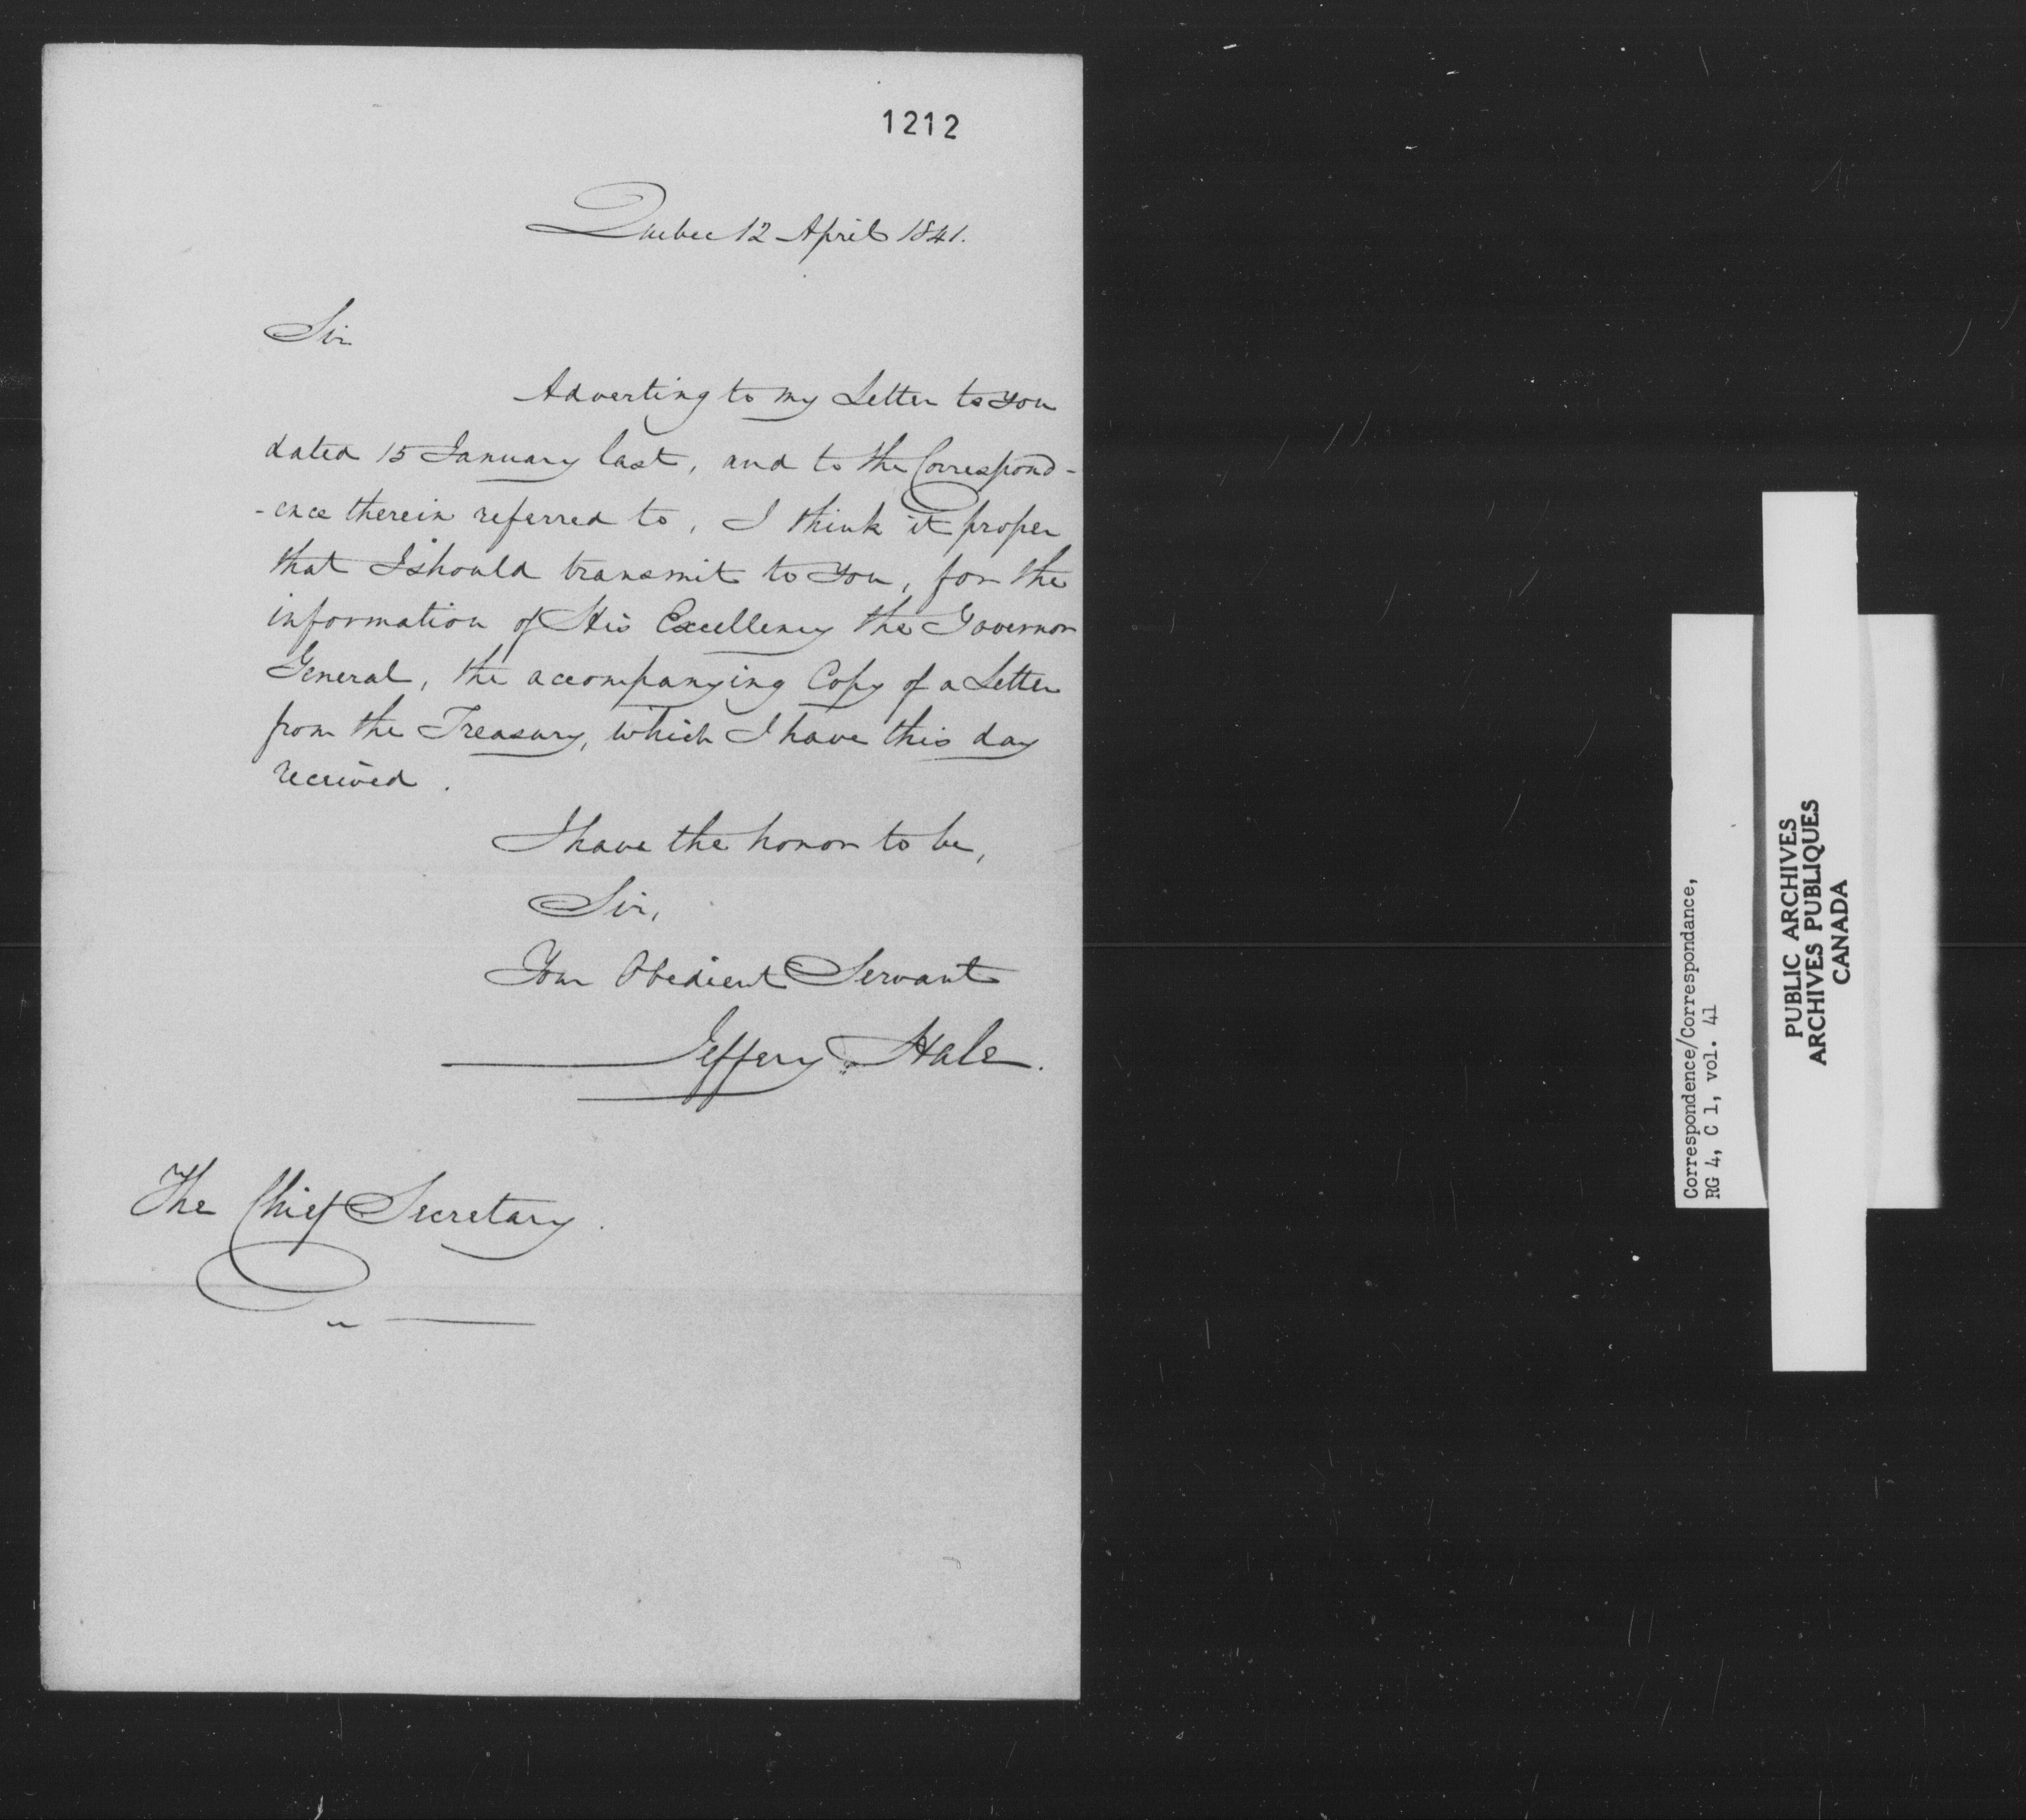 1212
Quebec 12 April 1841.
Sir
Adverting to my Letter to you
dated 15 January last, and to the Correspond-
-ence therein referred to, I think it proper
that I should transmit to you, for the
information of His Excellency the Governor
General, the accompanying Copy of a Letter
from the Treasury, which I have this day
received.
I have the honor to be,
Sir,
Your Obedient Servant
Jeffery Hale.
The Chief Secretary.
Correspondence/Correspondance,
RG 4, C 1, vol. 41
PUBLIC ARCHIVES
ARCHIVES PUBLIQUES
CANADA